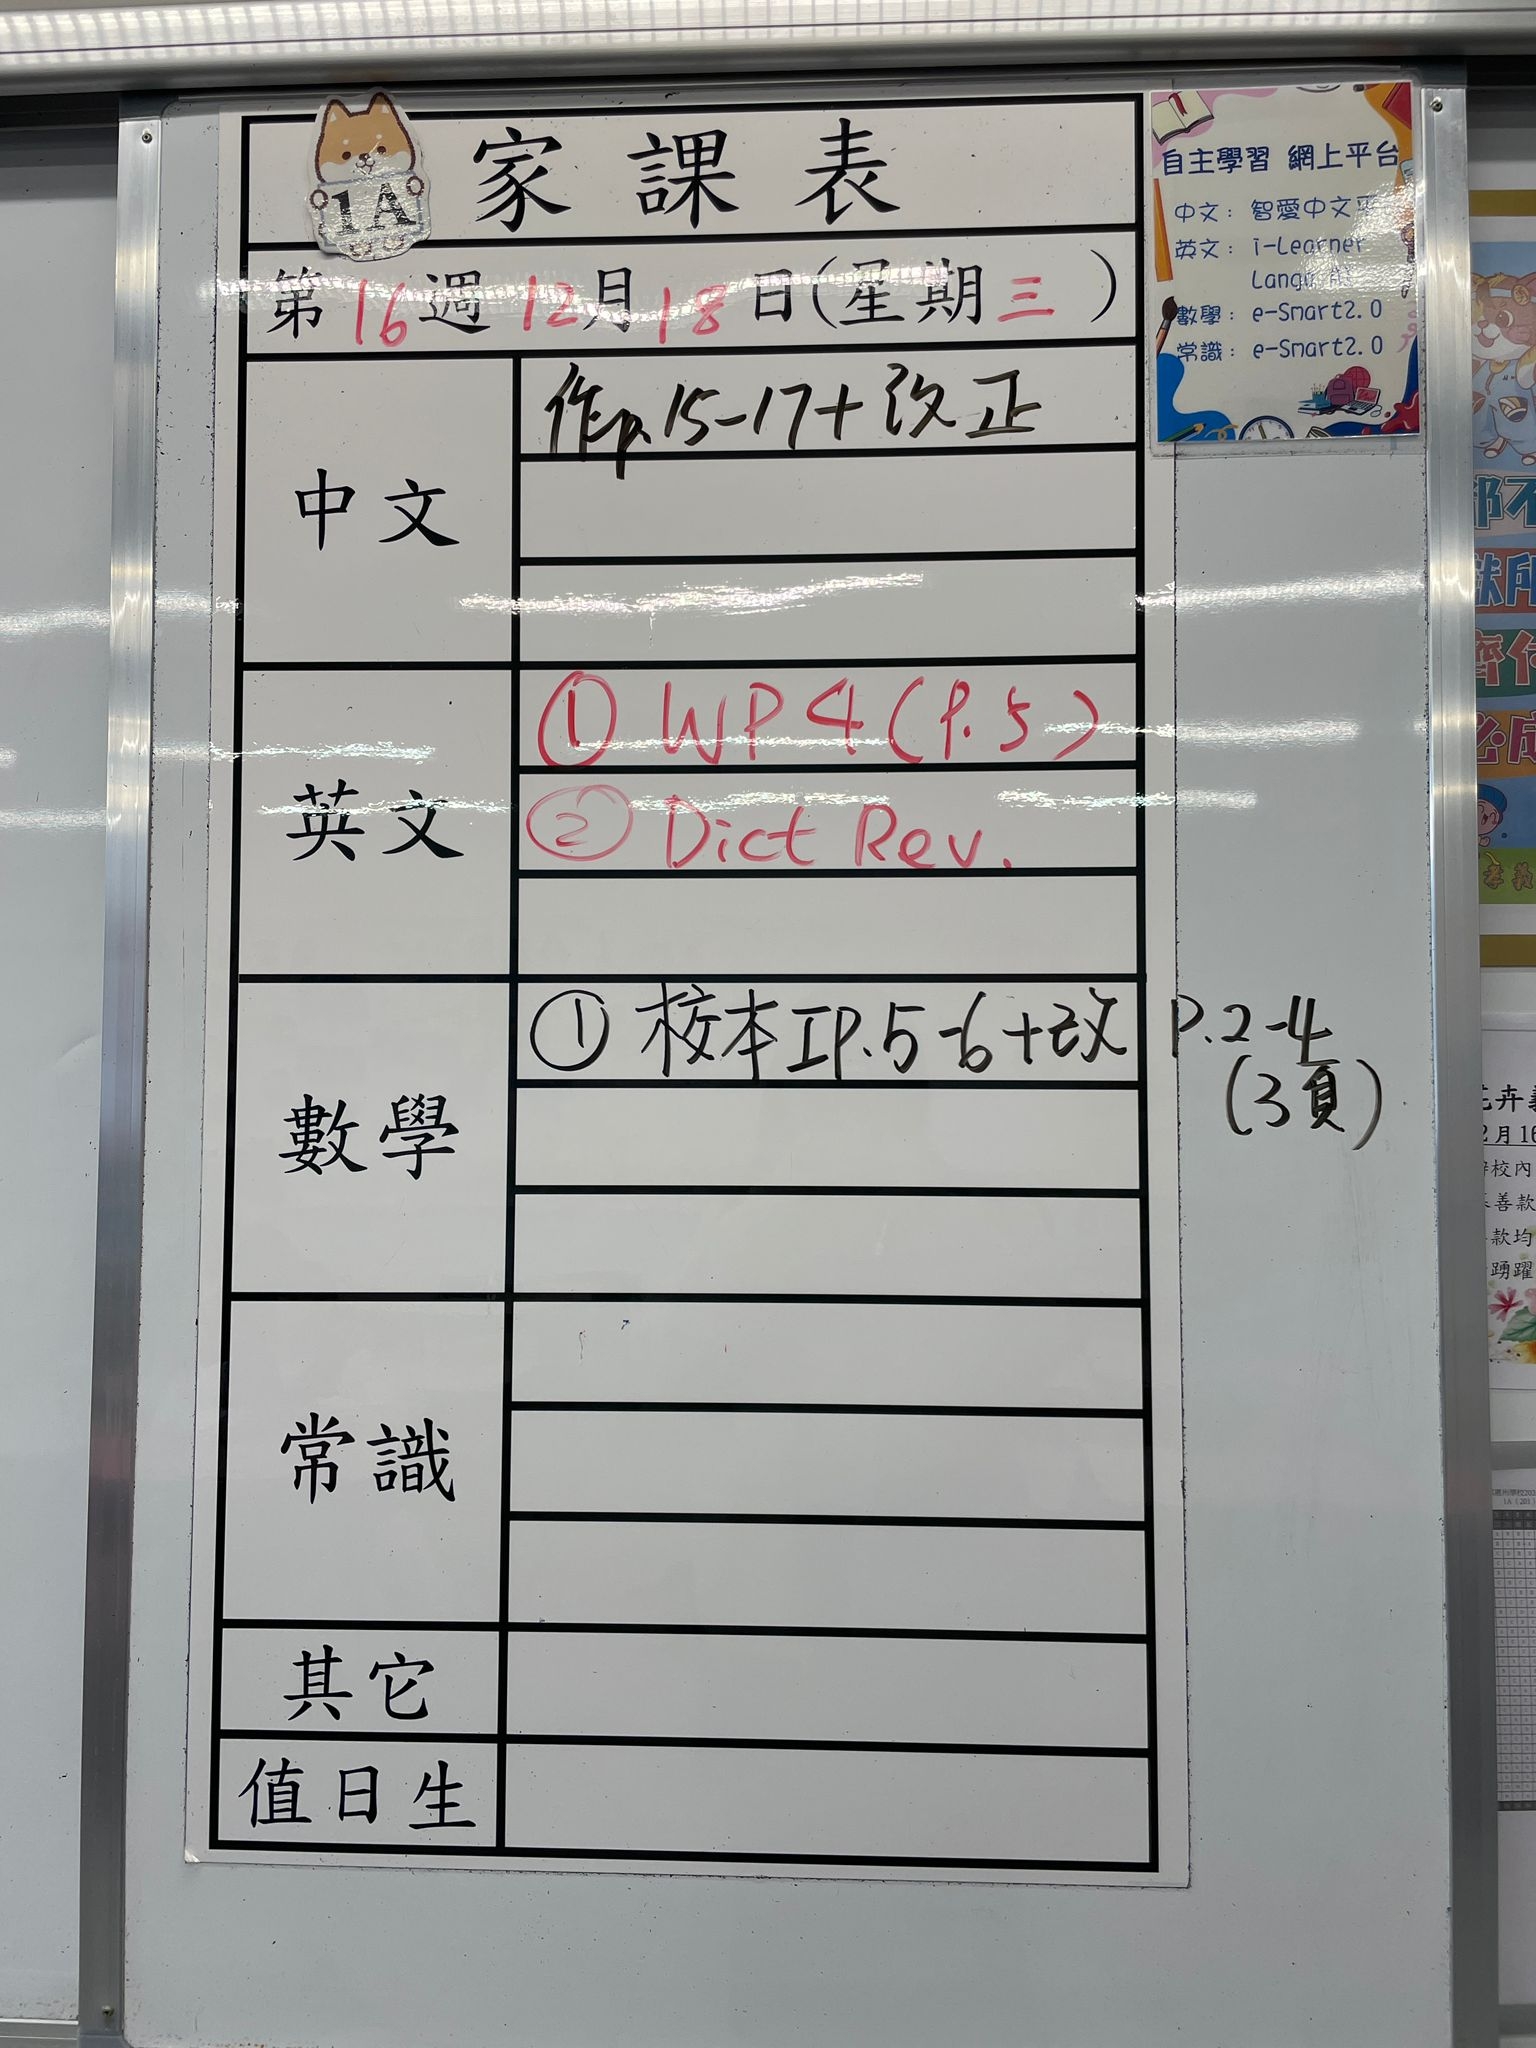 1A
家課表
第16週12月18日(星期三)
中文
作p.15-17+改正
英文
① WP4(P.5)
② Dict Rev.
數學
① 校本IP.5-6+改 P.2-4
(3頁)
常識
其它
值日生
自主學習 網上平台
中文: 智愛中文平
英文: i-Learner
數學: e-Smart2.0
常識: e-Smart2.0
必成
孝義
2月16
校內
善款
款均
踴躍